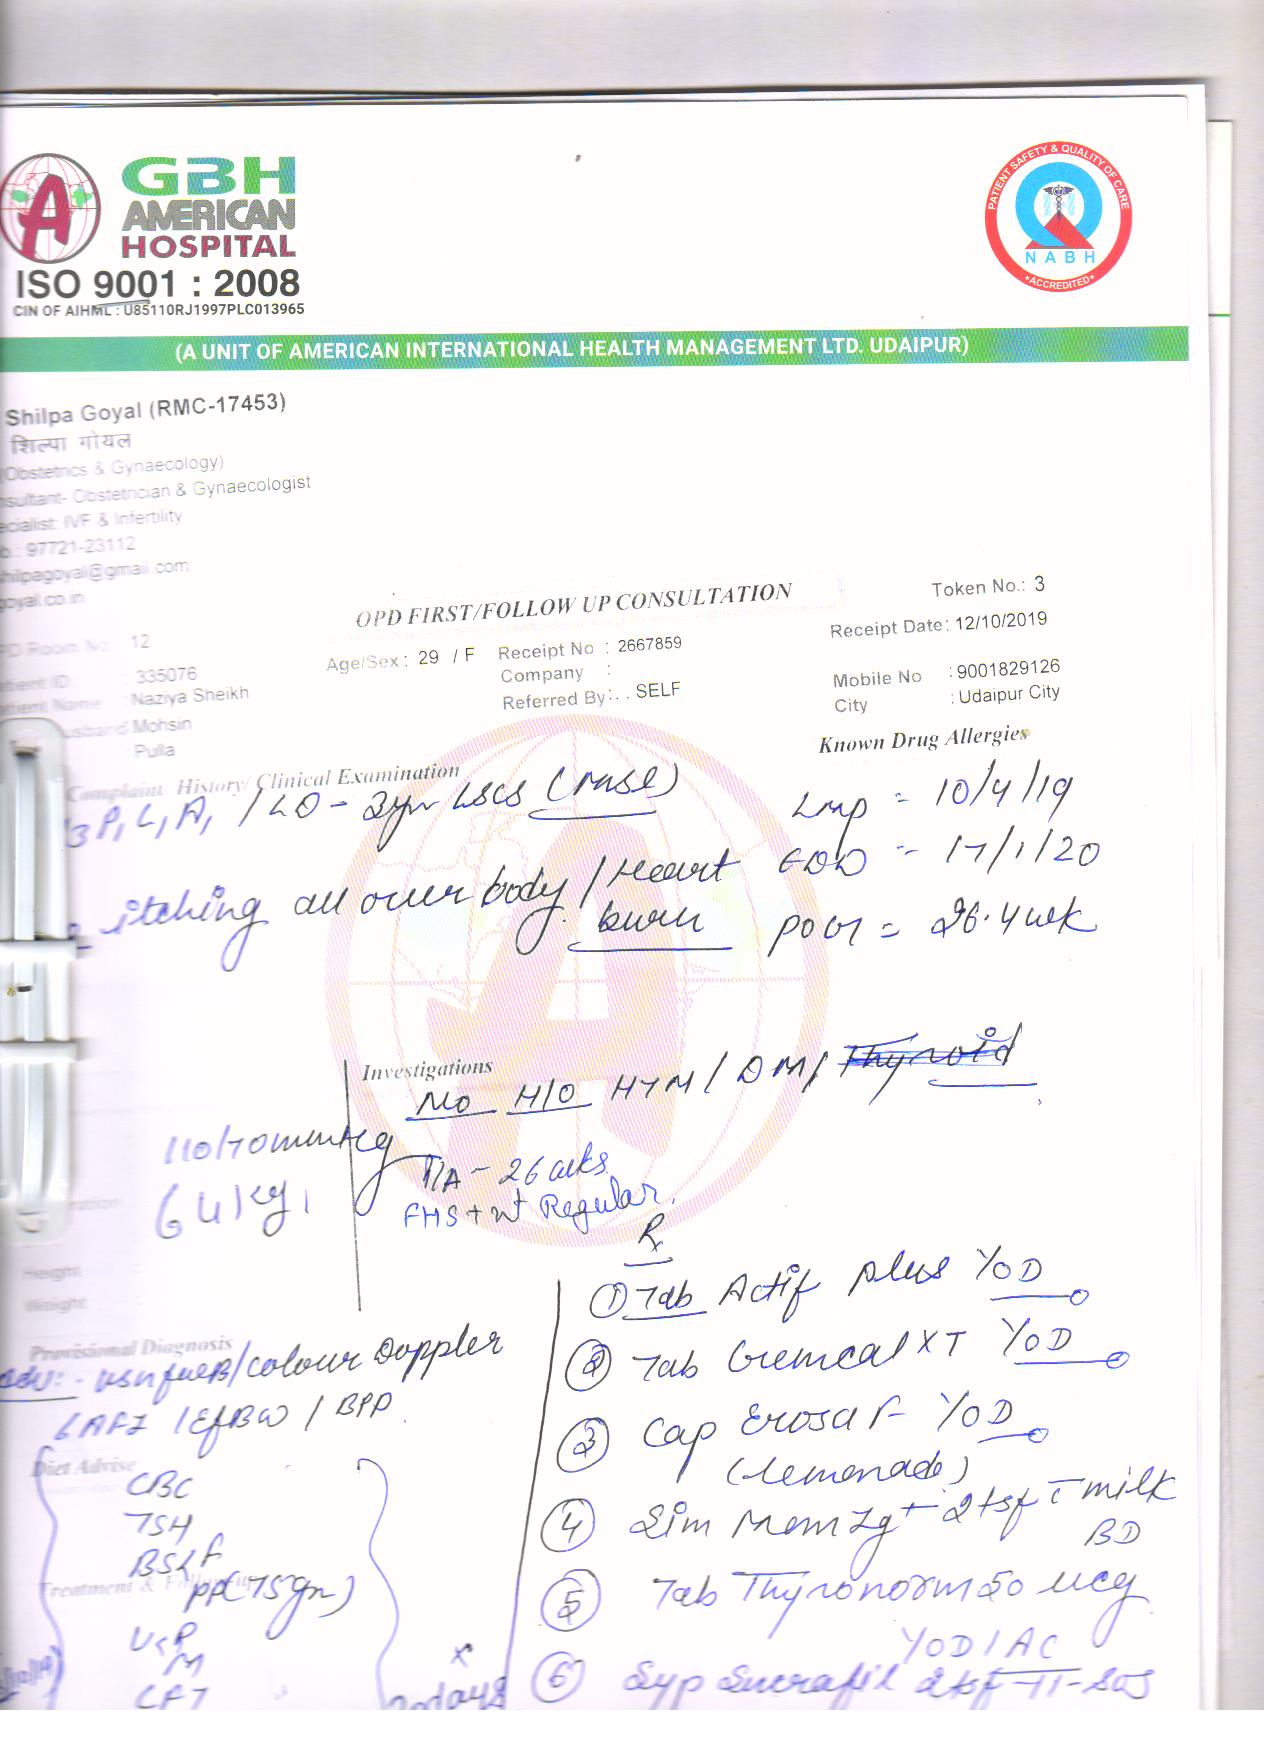 GBH
AMERICAN
HOSPITAL
ISO 9001 : 2008
CIN OF AIHML : U85110RJ1997PLC013965
PATIENT SAFETY & QUALITY OF CARE
NABH
ACCREDITED
(A UNIT OF AMERICAN INTERNATIONAL HEALTH MANAGEMENT LTD. UDAIPUR)
Shilpa Goyal (RMC-17453)
शिल्पा गोयल
(Obstetrics & Gynaecology)
nsultant- Obstetrician & Gynaecologist
ecialist: IVF & Infertility
b.: 97721-23112
shilpagoyal@gmail.com
goyal.co.in
OPD FIRST/FOLLOW UP CONSULTATION
Token No.: 3
PD Room No. 12
Age/Sex : 29 / F
Receipt No : 2667859
Receipt Date: 12/10/2019
atient ID : 335076
Company :
Mobile No : 9001829126
atient Name : Naziya Sheikh
Referred By: . . SELF
City : Udaipur City
usband Mohsin
: Pulla
Known Drug Allergies
Complaint History/ Clinical Examination
3 P1 L1 A1 / LD - 2yr LSCS (MSL)
LMP = 10/4/19
itching all over body / Heart burn
EDD = 17/1/20
POG = 26.4 wk
Investigations
No H/O HTN / DM / Thyroid
110/70 mmHg
64 kg
P/A - 26 wks
FHS + nt Regular.
Rx
Height
Weight
Provisional Diagnosis
Adv: - USG / Colour Doppler
AFI / EFBW / BPP
Diet Advise
CBC
TSH
BSL F
PP (75 gm)
Treatment & Follow-up
M
① Tab Actif plus YOD
② Tab Gemcal XT YOD
③ Cap YOD
(Lemonade)
④ Sim Mom 2 tsf c milk
BD
⑤ Tab Thyronorm 50 mcg
YOD / AC
⑥ Syp Sucrafil 2 tsf - SOS
days